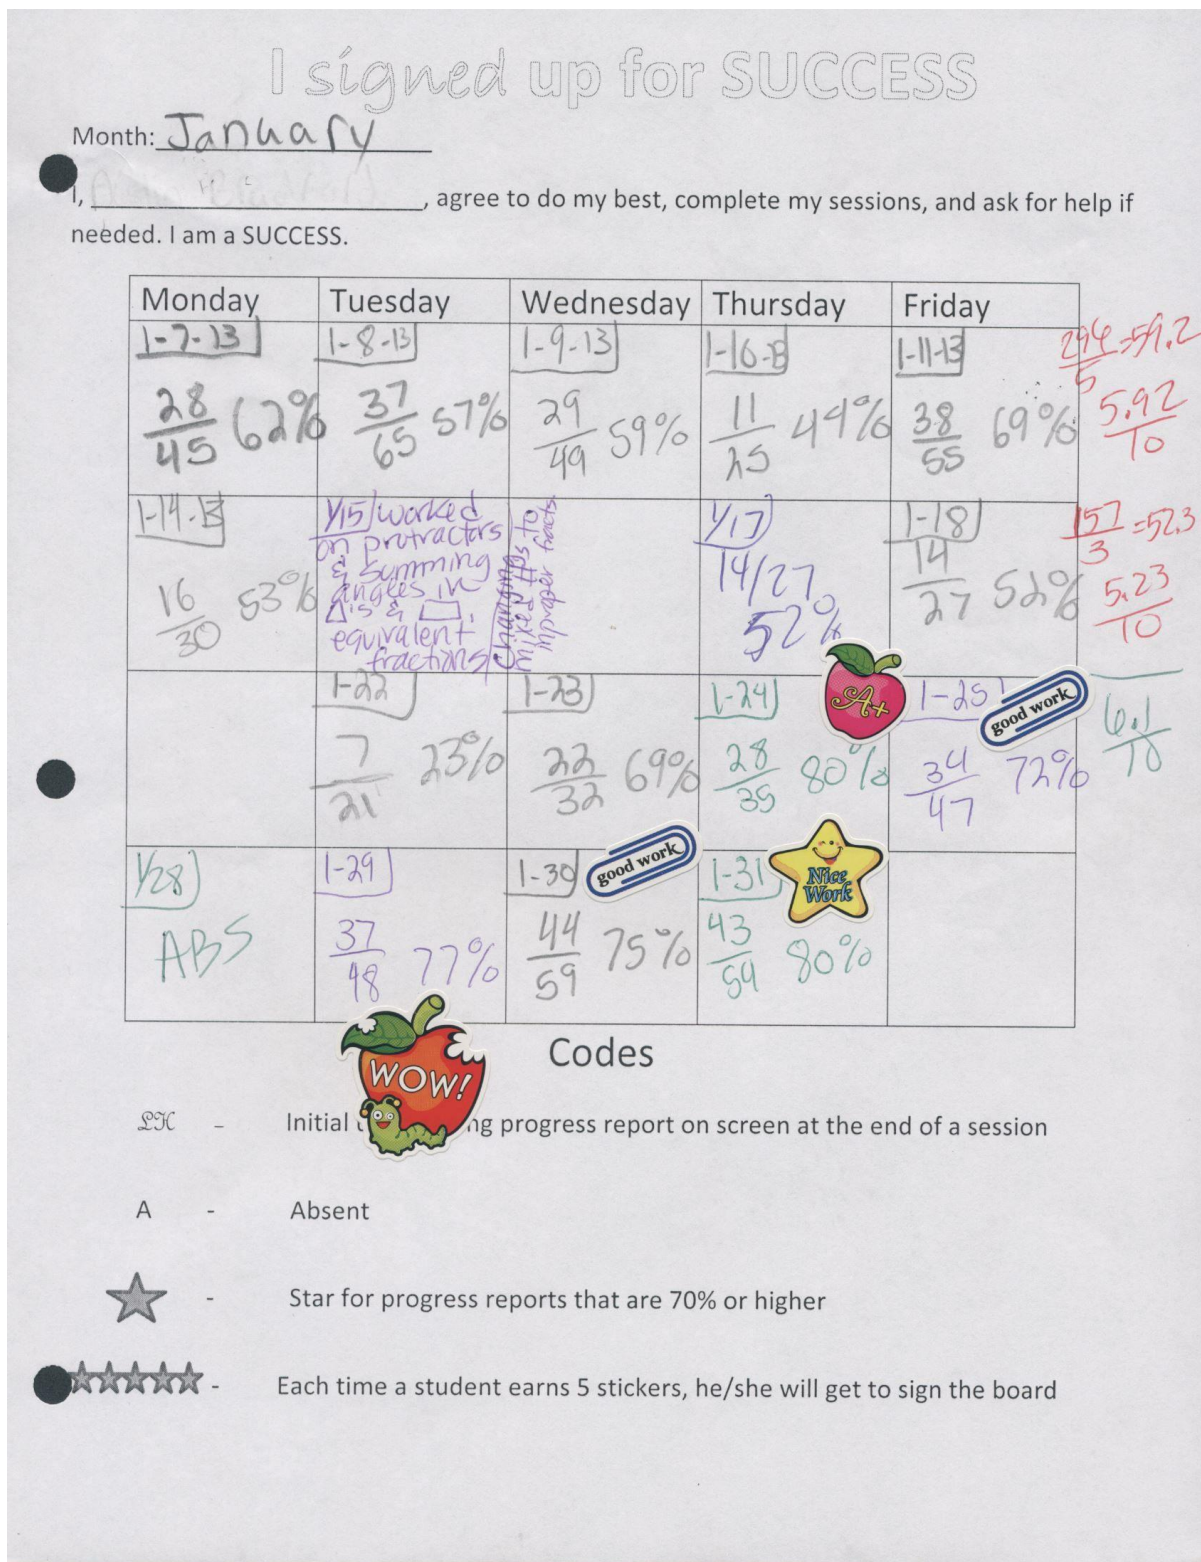 I signed up for SUCCESS
Month: January
I, , agree to do my best, complete my sessions, and ask for help if
needed. I am a SUCCESS.
Monday Tuesday Wednesday Thursday Friday
1-7-13
28/45 62%
1-8-13
37/65 57%
1-9-13
29/49 59%
1-10-13
11/25 44%
1-11-13
38/55 69%
294/5 = 59.2
5.92/10
1-14-13
16/30 53%
1/15 worked
on protractors
& summing
angles in
△'s & ⏢,
equivalent
fractions
changing
mixed #s to
improper fracts.
1/17
14/27
52%
1-18
14/27 52%
157/3 = 52.3
5.23/10
1-22
7/21 23%
1-23
22/32 69%
1-24
A+
28/35 80%
1-25
good work
34/47 72%
6.1/10
1/28
ABS
1-29
37/48 77%
1-30
good work
44/59 75%
1-31
Nice
Work
43/54 80%
WOW!
Codes
LH - Initial ng progress report on screen at the end of a session
A - Absent
- Star for progress reports that are 70% or higher
- Each time a student earns 5 stickers, he/she will get to sign the board